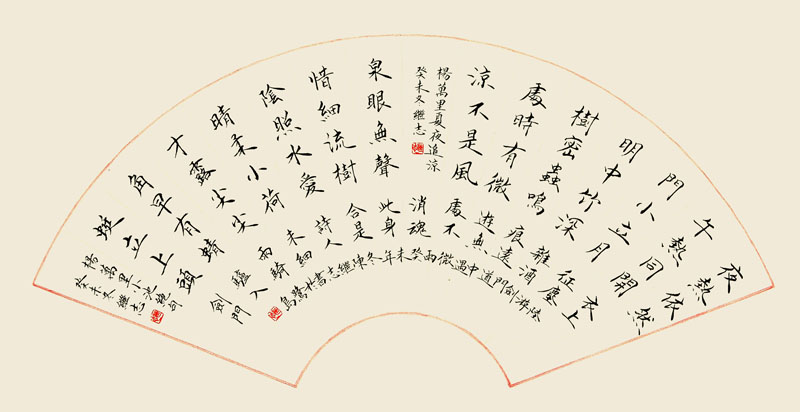 夜熱依然
午熱同開
門小立月
明中竹深
樹密蟲鳴
處時有微
涼不是風
楊萬里夏夜追涼
癸未冬繼志
泉眼無聲
惜細流樹
陰照水愛
晴柔小荷
才露尖尖
角早有蜻
蜓立上頭
楊萬里小池絕句
癸未冬繼志
衣上
征塵
雜酒
痕遠
遊無
處不
消魂
此身
合是
詩人
未細
雨騎
驢入
劍門
陸游劍門道中遇微雨癸未年冬陳繼志書於鷺島